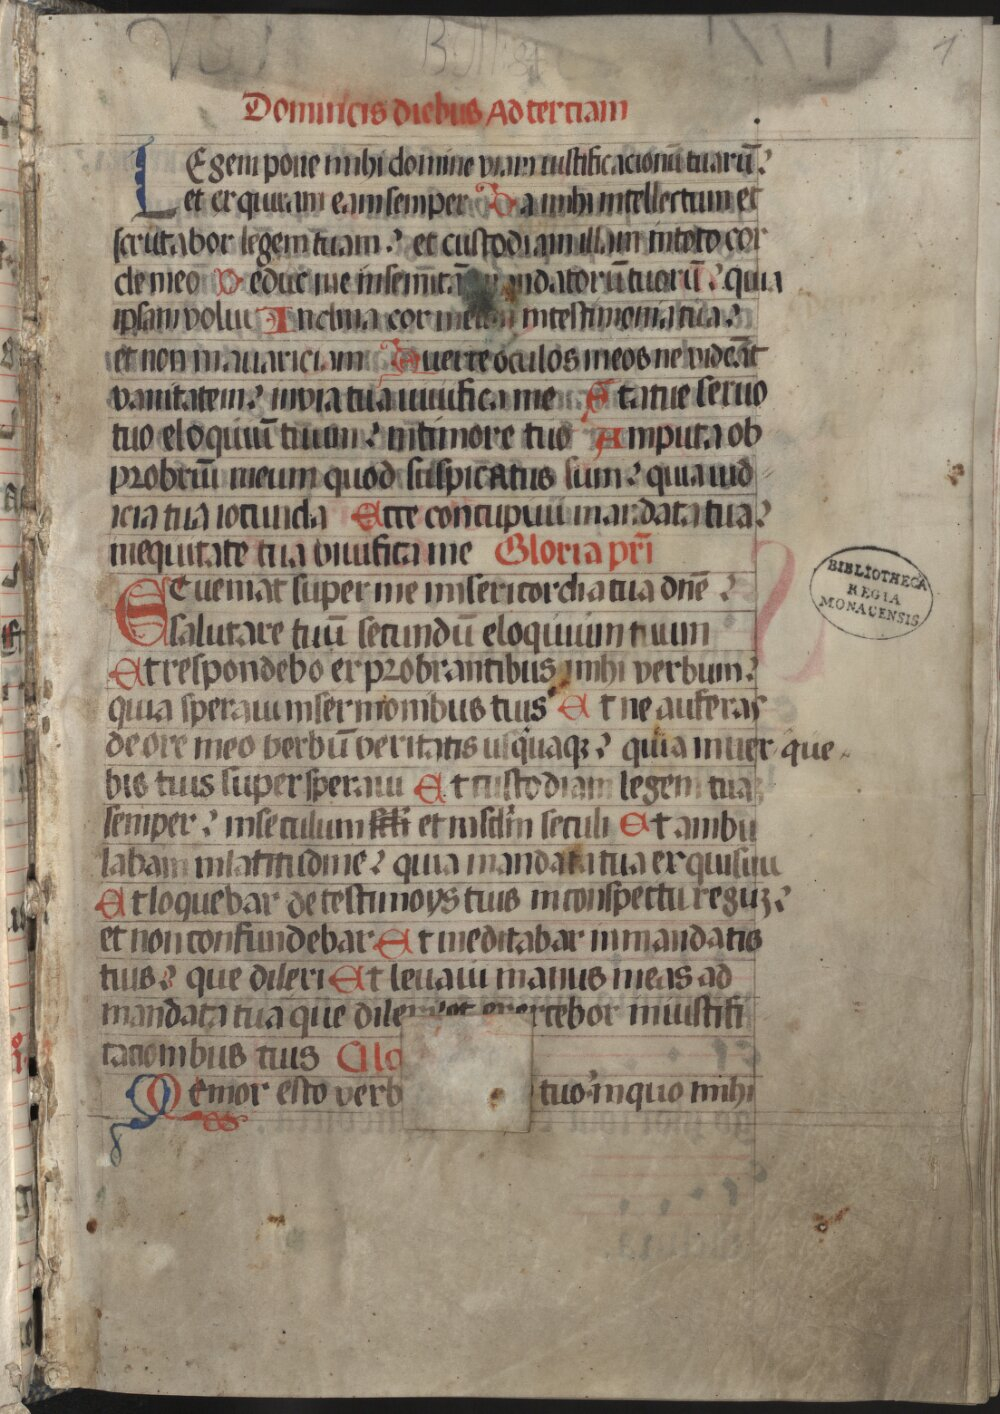 1
Dominicis diebus Ad terciam
Legem pone mihi domine viam iustificacionū tuarū?
et exquiram eam semper Da mihi intellectum et
scrutabor legem tuam? et custodiam illam in toto cor
de meo Deduc me in semitā mandatorū tuorū? quia
ipsam volui Inclina cor meum in testimonia tua?
et non in auariciam Auerte oculos meos ne videāt
vanitatem? in via tua viuifica me Statue seruo
tuo eloquiū tuum? in timore tuo Amputa ob
probriū meum quod suspicatus sum? quia iud
icia tua iocunda Ecce concupiui mandata tua?
in equitate tua viuifica me Gloria pr̄i
Et ueniat super me misericordia tua dn̄e?
salutare tuū secundū eloquium tuum
Et respondebo exprobrantibus mihi verbum?
quia speraui in sermonibus tuis Et ne auferas
de ore meo verbū veritatis usquaqꝫ? quia in iuer que
bis tuis supersperaui Et custodiam legem tuaꝫ
semper? in seculum et in sc̄lm seculi Et ambu
labam in latitudine? quia mandata tua exquisiui
Et loquebar de testimoys tuis in conspectu reguꝫ?
et non confundebar Et meditabar in mandatis
tuis? que dilexi Et leuaui manus meas ad
mandata tua que dilexi et exercebor in iustifi
cationibus tuis Glo
Memor esto verb tuo in quo mihi
BIBLIOTHECA
REGIA
MONACENSIS